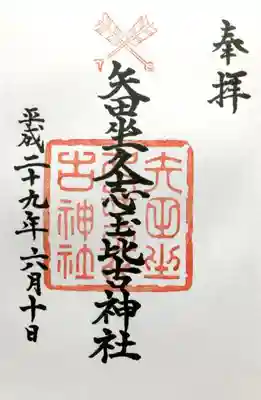 奉拝
矢田坐久志玉比古神社
平成二十九年六月十日
矢田坐
久志玉比
古神社